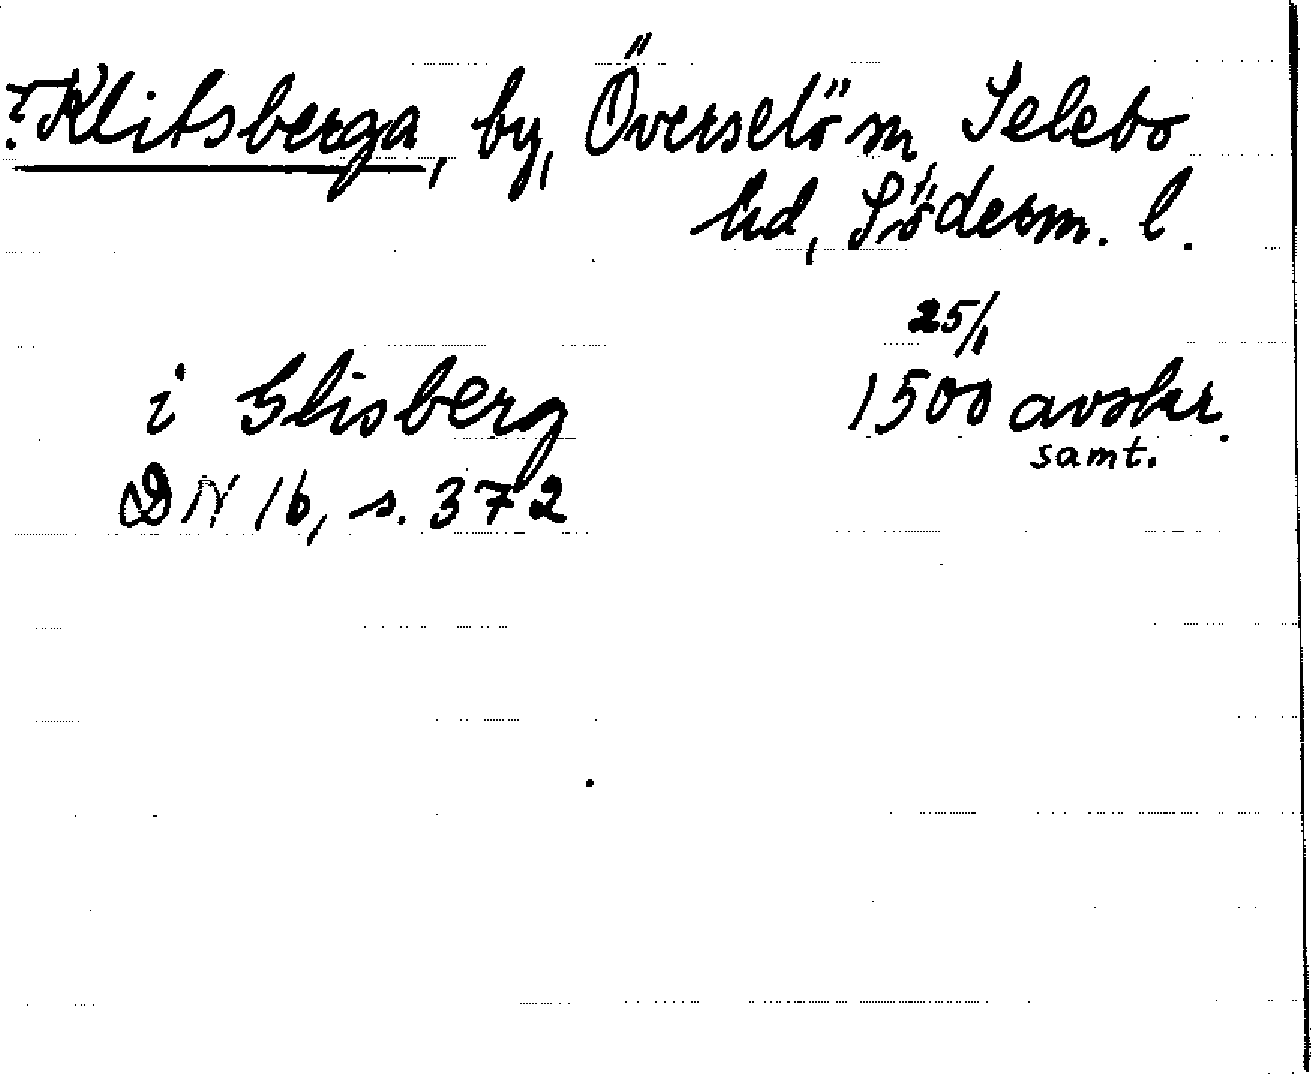 ? Klitsberga, by, Överselö sn, Selebo
hd, Söderm. l.
25/1
i Glisberg 1500 avskr.
samt.
DN 16, s. 372